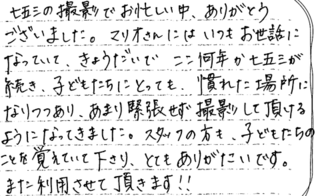 七五三の撮影でお忙しい中、ありがとう
ございました。マリオさんにはいつもお世話に
なっていて、きょうだいで ここ何年か七五三が
続き、子どもたちにとっても、慣れた場所に
なりつつあり、あまり緊張せず撮影して頂ける
ようになってきました。スタッフの方も、子どもたちの
ことを覚えていて下さり、とてもありがたいです。
また利用させて頂きます!!